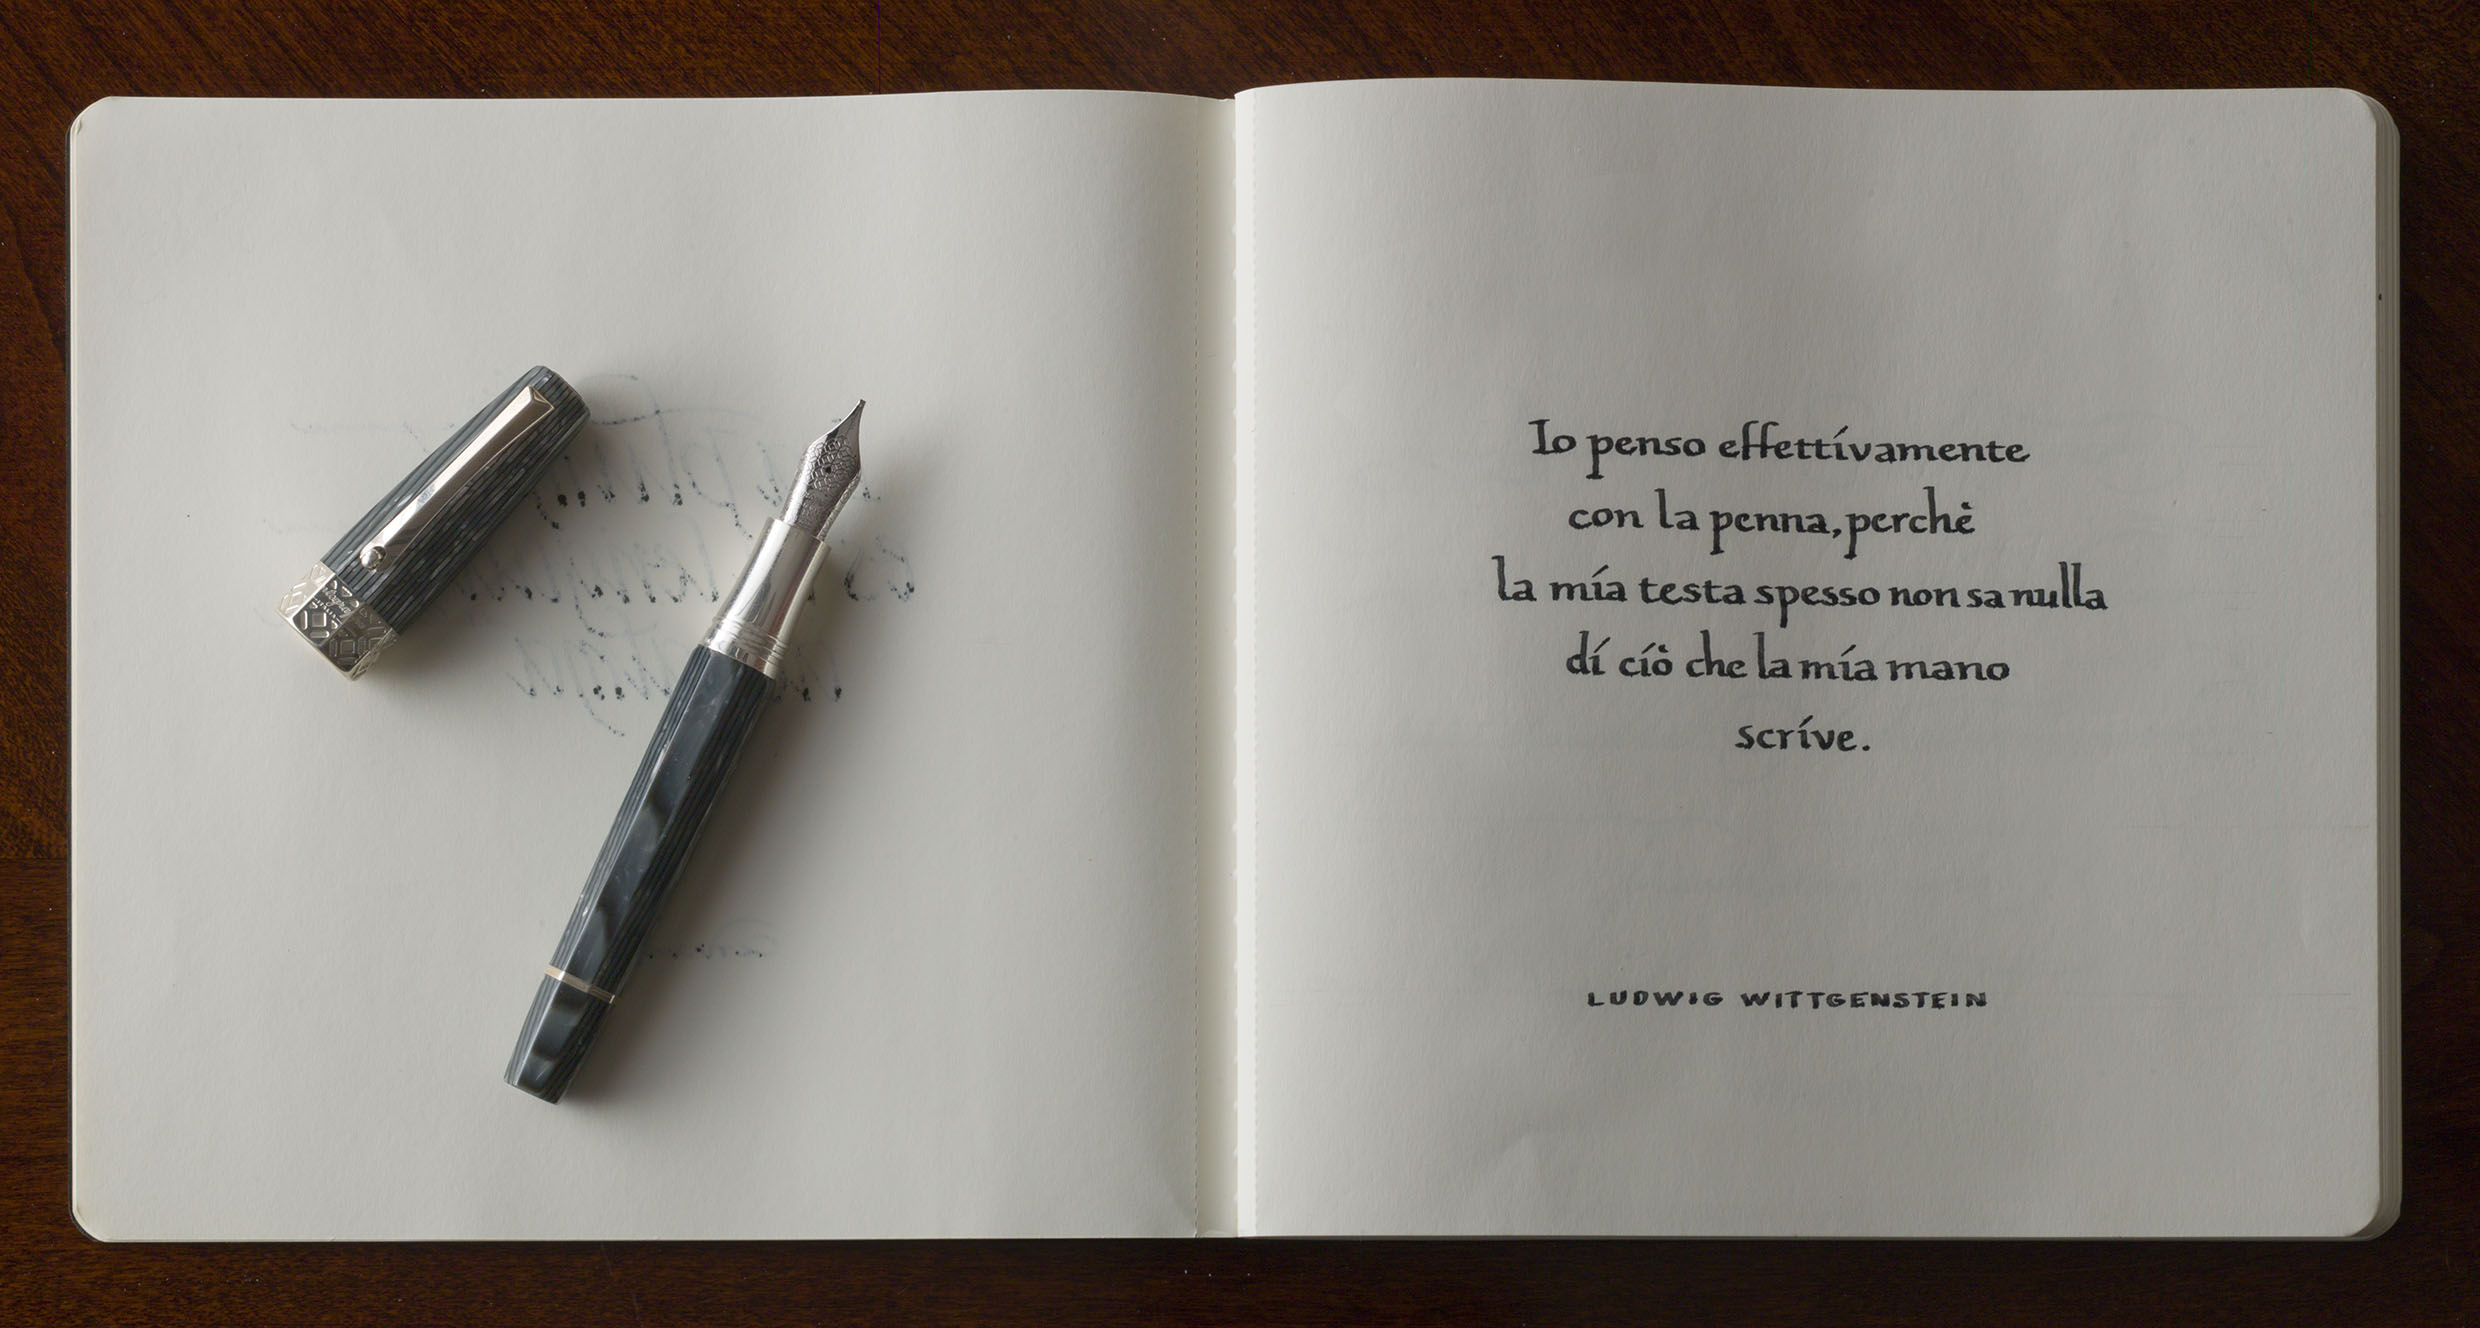 Io penso effettívamente
con la penna, perchè
la mía testa spesso non sa nulla
dí cíò che la mía mano
scríve.
LUDWIG WITTGENSTEIN